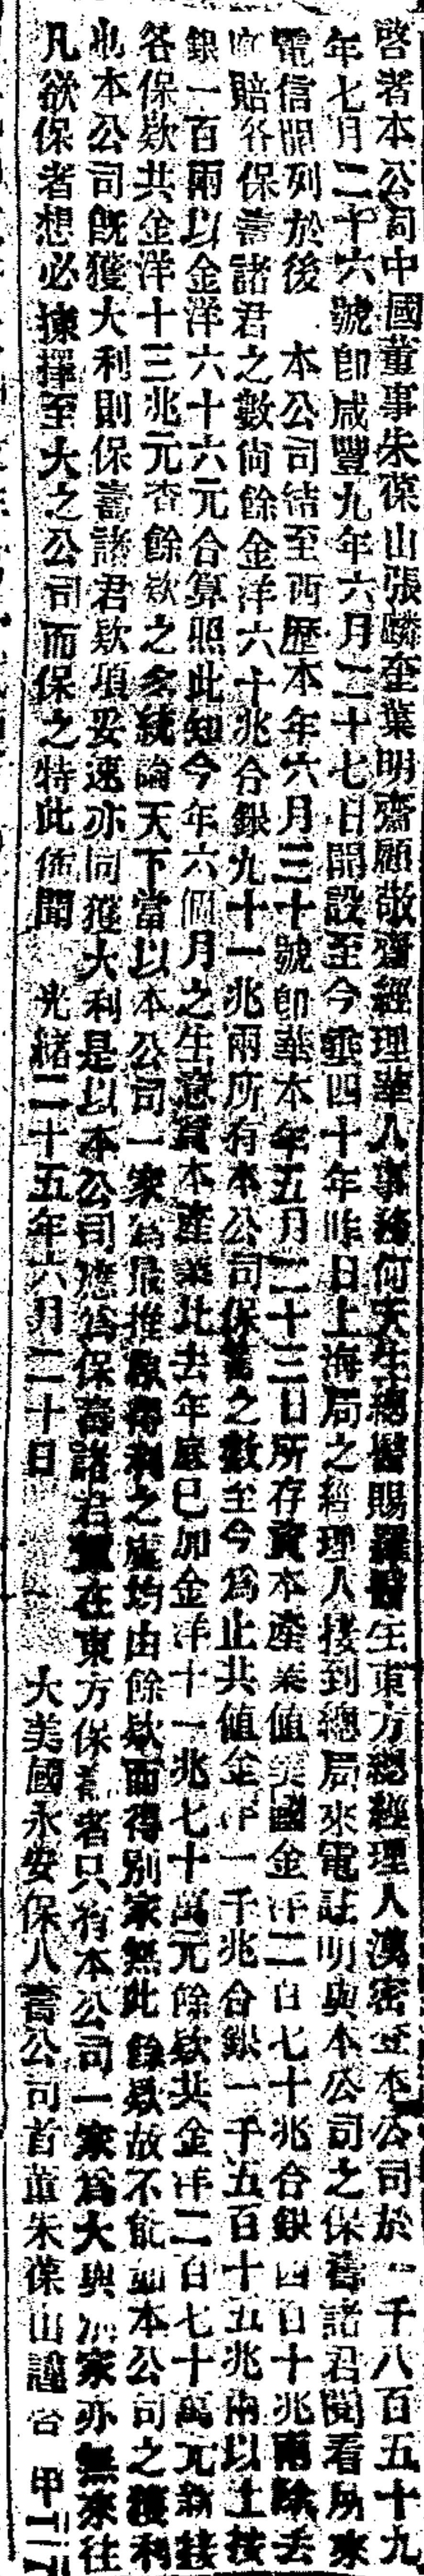 啓者本公司中國董事朱葆山張麟奎葉明齋顧敬齋經理華人事務何天生總醫賜羅醫生東方總經理人漢密本公司於一千八百五十九
年七月二十六號卽咸豐九年六月二十七日開設至今垂四十年昨日上海局之經理人接到總局來電註明與本公司之保壽諸君閱看所來
電信開列於後 本公司結至西歷本年六月三十號卽華本年五月二十三日所存資本產業值美國金洋二百七十兆合銀四百十兆兩除去
應賠各保壽諸君之數尙餘金洋六十兆合銀九十一兆兩所有本公司保壽之數至今爲止共值金洋一千兆合銀一千五百十五兆兩以上按
銀一百兩以金洋六十六元合算照此知今年六個月之生意資本產業比去年底已加金洋十一兆七十萬元餘欵共金洋二百七十萬元新接
各保欵共金洋十三兆元查餘欵之多統論天下當以本公司一家爲最推厥得利之處均由餘欵而得別家無此餘欵故不能如本公司之獲利
也本公司旣獲大利則保壽諸君欵項妥速亦同獲大利是以本公司應公保壽諸君實在東方保壽者只有本公司一家爲大與別家亦無來往
凡欲保者想必揀擇至大之公司而保之特此佈聞 光緒二十五年六月二十日 大美國永安保人壽公司首董朱葆山謹啓 甲